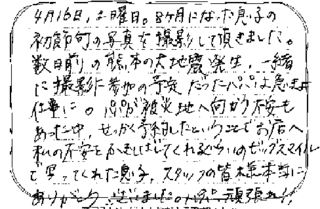 4月16日,土曜日。8ヶ月になった息子の
初節句の写真を撮影して頂きました。
数日前の熊本の大地震発生。一緒
に撮影に参加の予定だったパパは急きょ
仕事に。パパが被災地へ向かう不安も
あった中、せっかく予約したということでお店へ
私の不安をかきけしてくれるくらいのビックスマイル
で写ってくれた息子。スタッフの皆様本当に
ありがとうございました。頑張れ!!